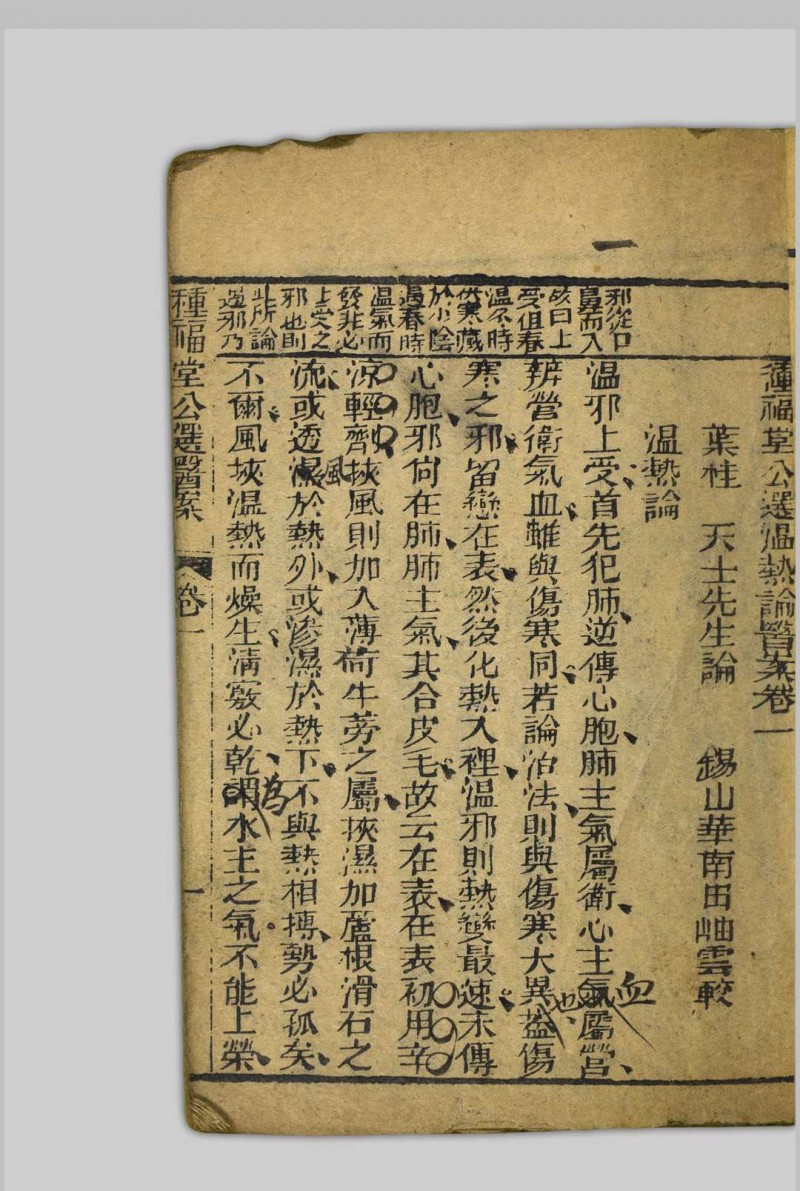 種福堂公選溫熱論醫案卷一
葉桂　天士先生論　錫山華南田岫雲較
溫熱論
溫邪上受首先犯肺逆傳心胞肺主氣屬衛心主氣屬營
血
辨營衛氣血雖與傷寒同若論治法則與傷寒大異蓋傷
也
寒之邪留戀在表然後化熱入裡溫邪則熱變最速未傳
心胞邪尚在肺肺主氣其合皮毛故云在表在表初用辛
涼輕劑挾風則加入薄荷牛蒡之屬挾濕加蘆根滑石之
流或透濕於熱外或滲濕於熱下不與熱相搏勢必孤矣
風
不爾風挾溫熱而燥生淸竅必乾謂水主之氣不能上榮
為
一
邪從口
鼻而入
故曰上
受但春
溫冬時
伏寒藏
於少陰
遇春時
溫氣而
發非必
上受之
邪也則
此所論
溫邪乃
種福堂公選醫案　卷一　一